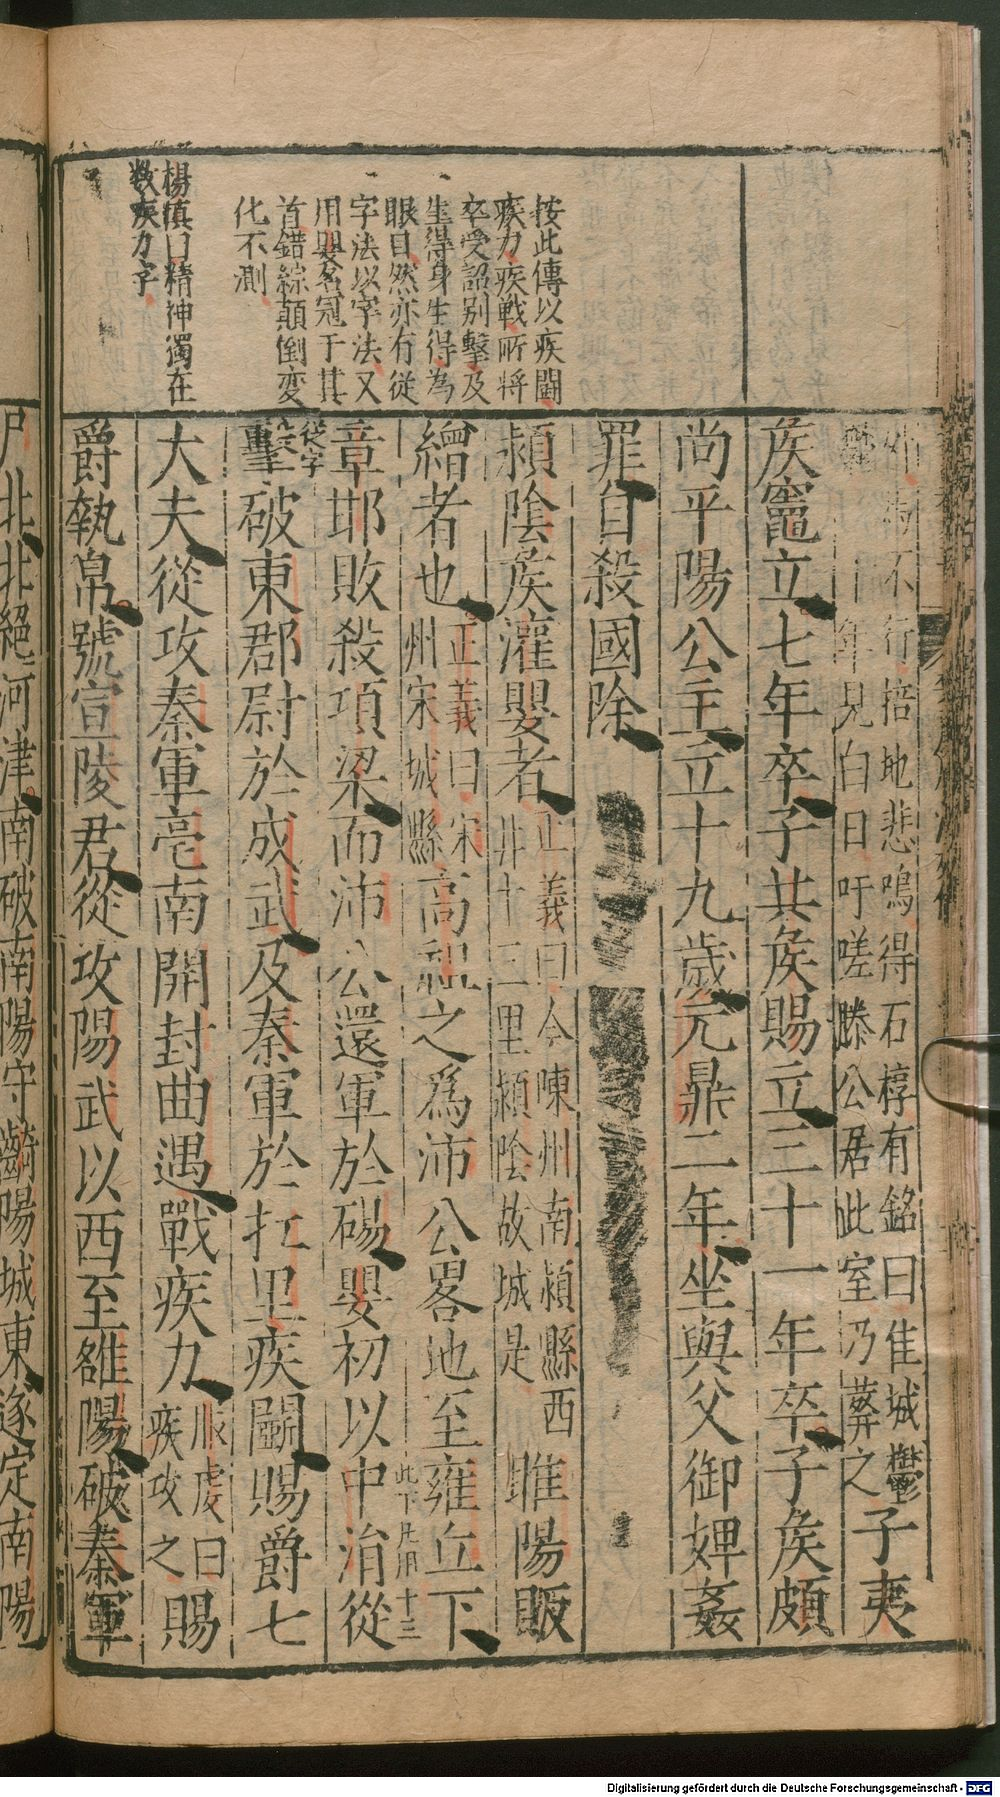 外馬不行掊地悲鳴得石椁有銘曰佳城鬱
年見白日吁嗟滕公居此室乃葬之
子夷
矦竈立七年卒子共矦賜立三十一年卒子矦頗
尚平陽公主立十九歲元鼎二年坐與父御婢姦
罪自殺國除
潁陰矦灌嬰者
正義曰今陳州南潁縣西
北十三里潁陰故城是
睢陽販
繒者也
正義曰宋
州宋城縣
高祖之爲沛公畧地至雍丘下
此下凡用十三
從字
章邯敗殺項梁而沛公還軍於碭嬰初以中涓從
擊破東郡尉於成武及秦軍於扛里疾鬭賜爵七
大夫從攻秦軍亳南開封曲遇戰疾力
服虔曰
疾攻之
賜
爵執帛號宣陵君從攻陽武以西至雒陽破秦軍
按此傳以疾鬭
疾力疾戰所將
卒受詔别擊及
生得身生得為
眼目然亦有從
字法以字法又
用嬰名冠于其
首錯綜顛倒变
化不測
楊慎曰精神獨在
数疾力字
尸北北絕河津南破南陽守齮陽城東遂定南陽
Digitalisierung gefördert durch die Deutsche Forschungsgemeinschaft - DFG